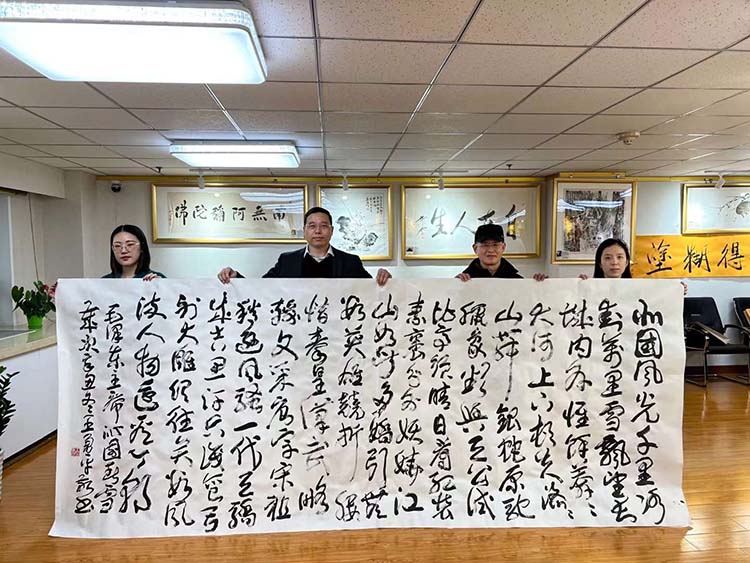 南無阿彌陀佛
人生
得糊塗
北國風光千里冰
封萬里雪飄望長
城内外惟餘莽〻
大河上下頓失滔〻
山舞銀蛇原馳
蠟象欲與天公試
比高須晴日看紅裝
素裹分外妖嬈江
山如此多嬌引無
數英雄競折腰
惜秦皇漢武略
輸文采唐宗宋祖
稍遜風騷一代天驕
成吉思汗只識彎弓
射大雕俱往矣數風
流人物還看今朝
毛澤東主席沁園春雪
歲次辛丑冬王書